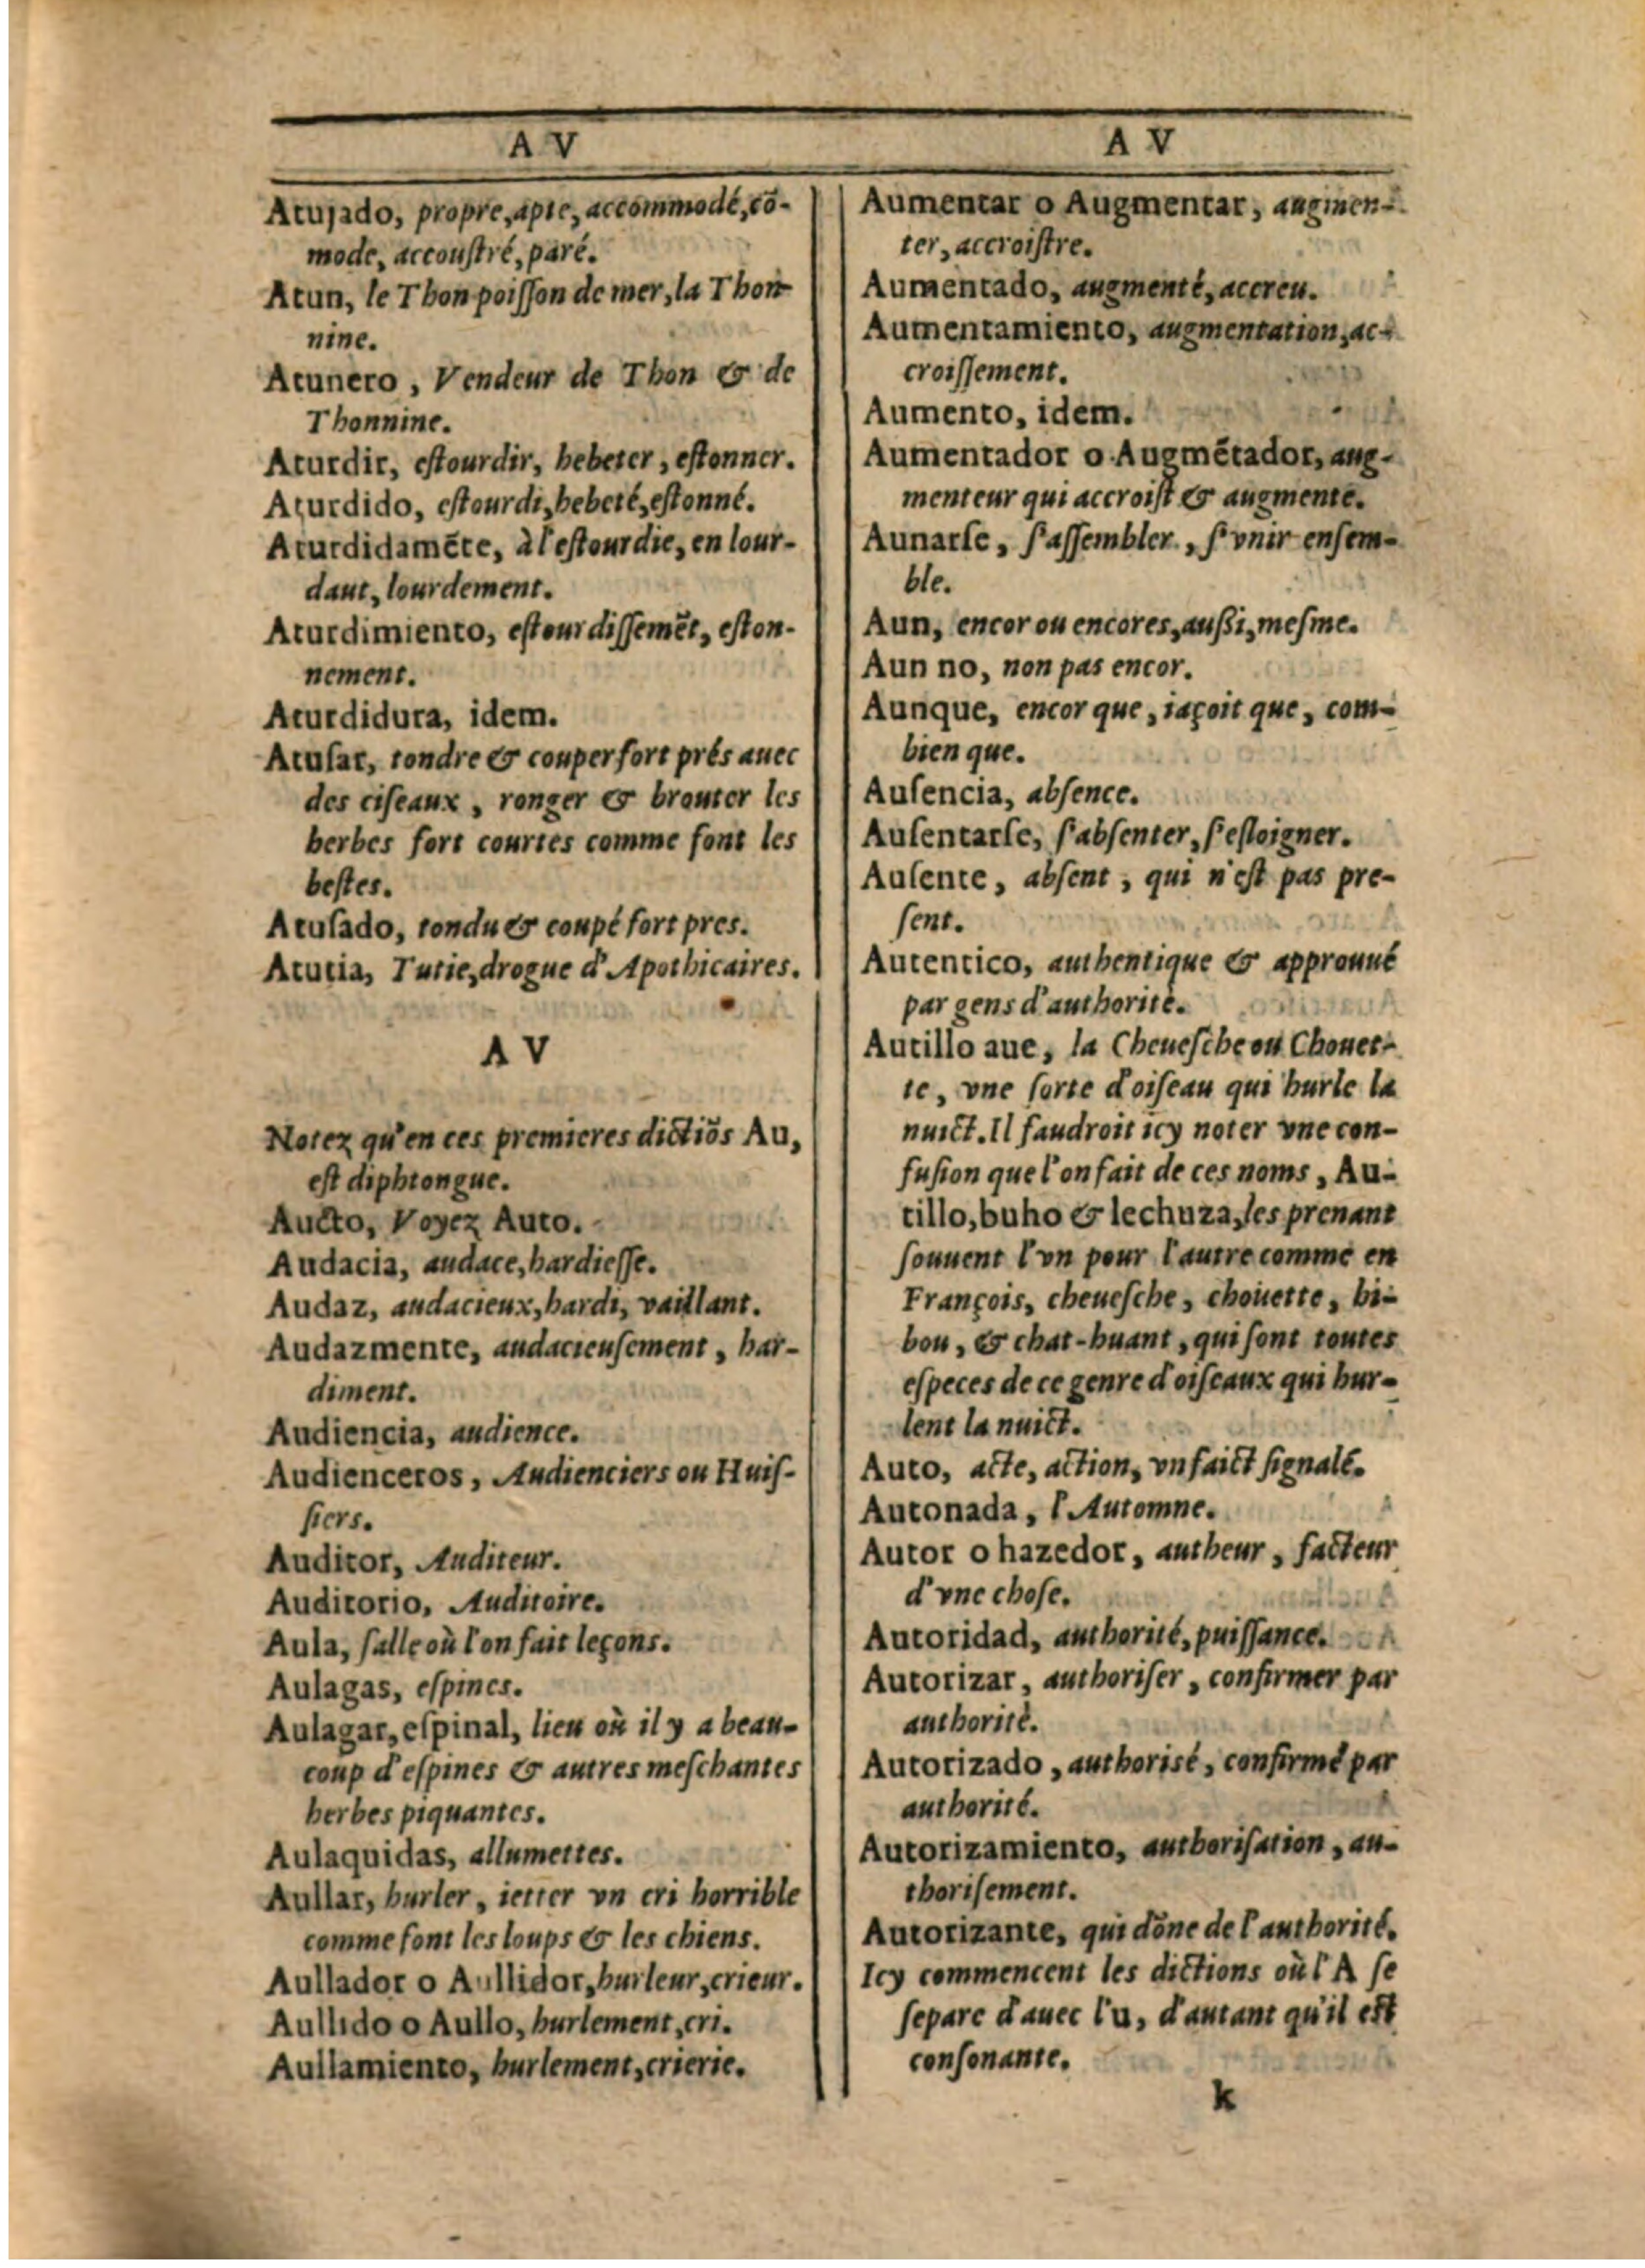 A V
Atujado, propre, apte, accommodé, cō-
mode, accouſtré, paré.
Atun, le Thon poiſſon de mer, la Thon-
nine.
Atunero, Vendeur de Thon & de
Thonnine.
Aturdir, eſtourdir, hebeter, eſtonner.
Aturdido, eſtourdi, hebeté, eſtonné.
Aturdidamēte, à l'eſtourdie, en lour-
daut, lourdement.
Aturdimiento, eſtourdiſſemēt, eſton-
nement.
Aturdidura, idem.
Atuſar, tondre & couper fort prés auec
des ciſeaux, ronger & brouter les
herbes fort courtes comme font les
beſtes.
Atuſado, tondu & coupé fort pres.
Atutia, Tutie, drogue d'Apothicaires.
A V
Notez qu'en ces premieres dictiōs Au,
eſt diphtongue.
Aucto, Voyez Auto.
Audacia, audace, hardieſſe.
Audaz, audacieux, hardi, vaillant.
Audazmente, audacieuſement, har-
diment.
Audiencia, audience.
Audienceros, Audienciers ou Huiſ-
ſiers.
Auditor, Auditeur.
Auditorio, Auditoire.
Aula, ſalle où l'on fait leçons.
Aulagas, eſpines.
Aulagar, eſpinal, lieu où il y a beau-
coup d'eſpines & autres meſchantes
herbes piquantes.
Aulaquidas, allumettes.
Aullar, hurler, ietter vn cri horrible
comme font les loups & les chiens.
Aullador o Aullidor, hurleur, crieur.
Aullido o Aullo, hurlement, cri.
Aullamiento, hurlement, crierie.
A V
Aumentar o Augmentar, augmen-
ter, accroiſtre.
Aumentado, augmenté, accreu.
Aumentamiento, augmentation, ac-
croiſſement.
Aumento, idem.
Aumentador o Augmētador, aug-
menteur qui accroiſt & augmente.
Aunarſe, ſ'aſſembler, ſ'vnir enſem-
ble.
Aun, encor ou encores, auſſi, meſme.
Aun no, non pas encor.
Aunque, encor que, iaçoit que, com-
bien que.
Auſencia, abſence.
Auſentarſe, ſ'abſenter, ſ'eſloigner.
Auſente, abſent, qui n'eſt pas pre-
ſent.
Autentico, authentique & approuué
par gens d'authorité.
Autillo aue, la Cheueſche ou Chouet-
te, vne ſorte d'oiſeau qui hurle la
nuict. Il faudroit icy noter vne con-
fuſion que l'on fait de ces noms, Au-
tillo, buho & lechuza, les prenant
ſouuent l'vn pour l'autre comme en
François, cheueſche, choüette, hi-
bou, & chat-huant, qui ſont toutes
eſpeces de ce genre d'oiſeaux qui hur-
lent la nuict.
Auto, acte, action, vn faict ſignalé.
Autonada, l'Automne.
Autor o hazedor, autheur, facteur
d'vne choſe.
Autoridad, authorité, puiſſance.
Autorizar, authoriſer, confirmer par
authorité.
Autorizado, authoriſé, confirmé par
authorité.
Autorizamiento, authoriſation, au-
thoriſement.
Autorizante, qui dōne de l'authorité.
Icy commencent les dictions où l'A ſe
ſepare d'auec l'u, d'autant qu'il eſt
conſonante.
k